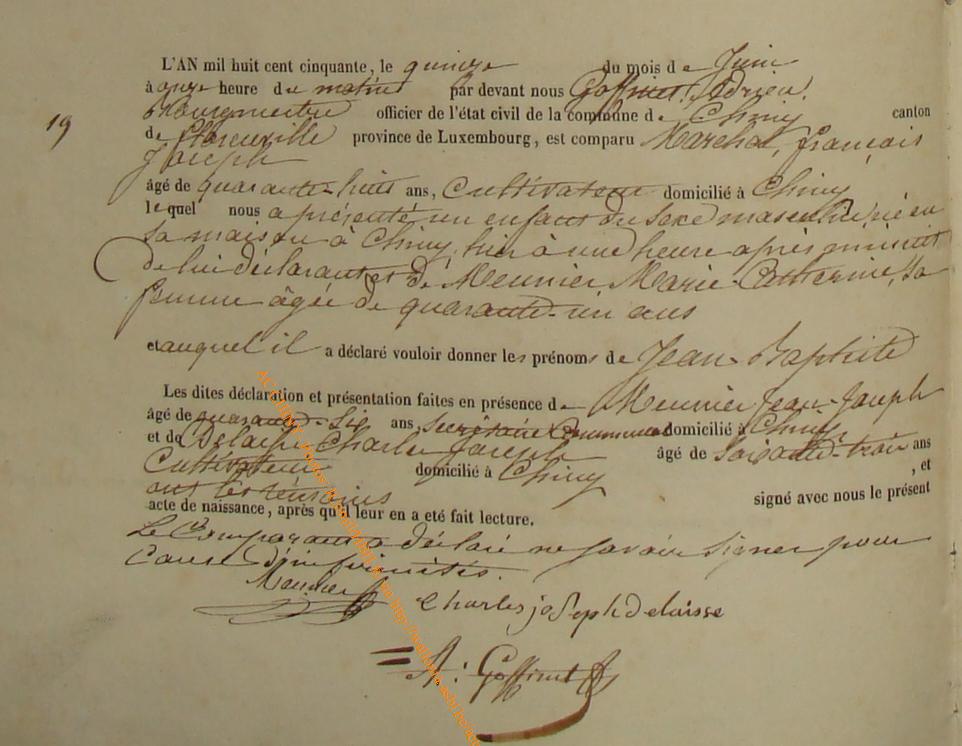 19
L'AN mil huit cent cinquante, le quinze du mois de Juin
à onze heure du matin par devant nous Goffinet, Adrien,
Bourgmestre officier de l'état civil de la commune de Chiny canton
de Florenville province de Luxembourg, est comparu Marechal, françois
Joseph
âgé de quarante-huit ans, Cultivateur domicilié à Chiny
lequel nous a présenté un enfant du sexe masculin, né en
sa maison à Chiny, hier à une heure après minuit
de lui déclarant et de Meunier, Marie-Catherine, sa
femme âgée de quarante-un ans
et auquel il a déclaré vouloir donner les prénoms de Jean-Baptiste
Les dites déclaration et présentation faites en présence de Meunier Jean-Joseph
âgé de quarante-six ans, secrétaire Communal domicilié à Chiny
et de Delaisse Charles Joseph âgé de Soixante-trois ans
Cultivateur domicilié à Chiny , et
ont les témoins signé avec nous le présent
acte de naissance, après qu'il leur en a eté fait lecture.
Le Comparant a déclaré ne savoir signer pour
cause d'infirmités.
Meunier
Charles joseph delaisse
A. Goffinet